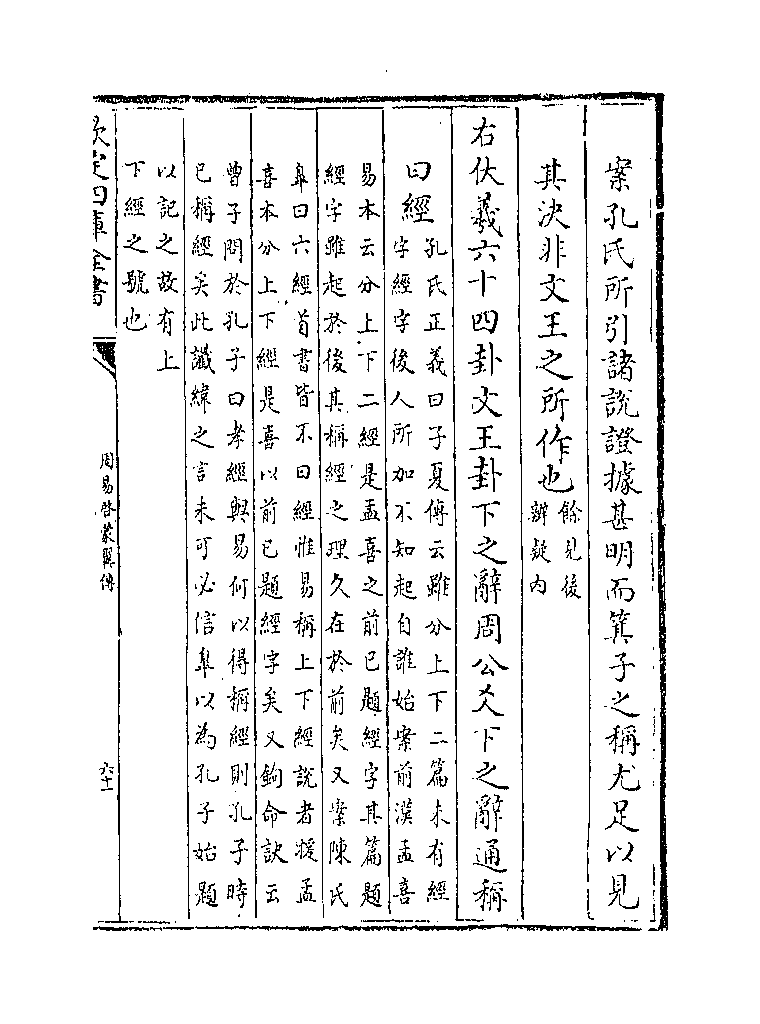 案孔氏所引諸説證據甚明而箕子之稱尤足以見
其決非文王之所作也
餘見後
辨疑内
右伏羲六十四卦文王卦下之辭周公爻下之辭通稱
曰經
孔氏正義曰子夏傳云雖分上下二篇未有經
字經字後人所加不知起自誰始案前漢孟喜
易本云分上下二經是孟喜之前已題經字其篇題
經字雖起於後其稱經之理久在於前矣又案陳氏
臯曰六經首書皆不曰經惟易稱上下經說者援孟
喜本分上下經是喜以前已題經字矣又鉤命訣云
曽子問於孔子曰孝經與易何以得稱經則孔子時
已稱經矣此讖緯之言未可必信臯以為孔子始題
以記之故有上
下經之號也
欽定四庫全書
周易啓蒙翼傳
六十一